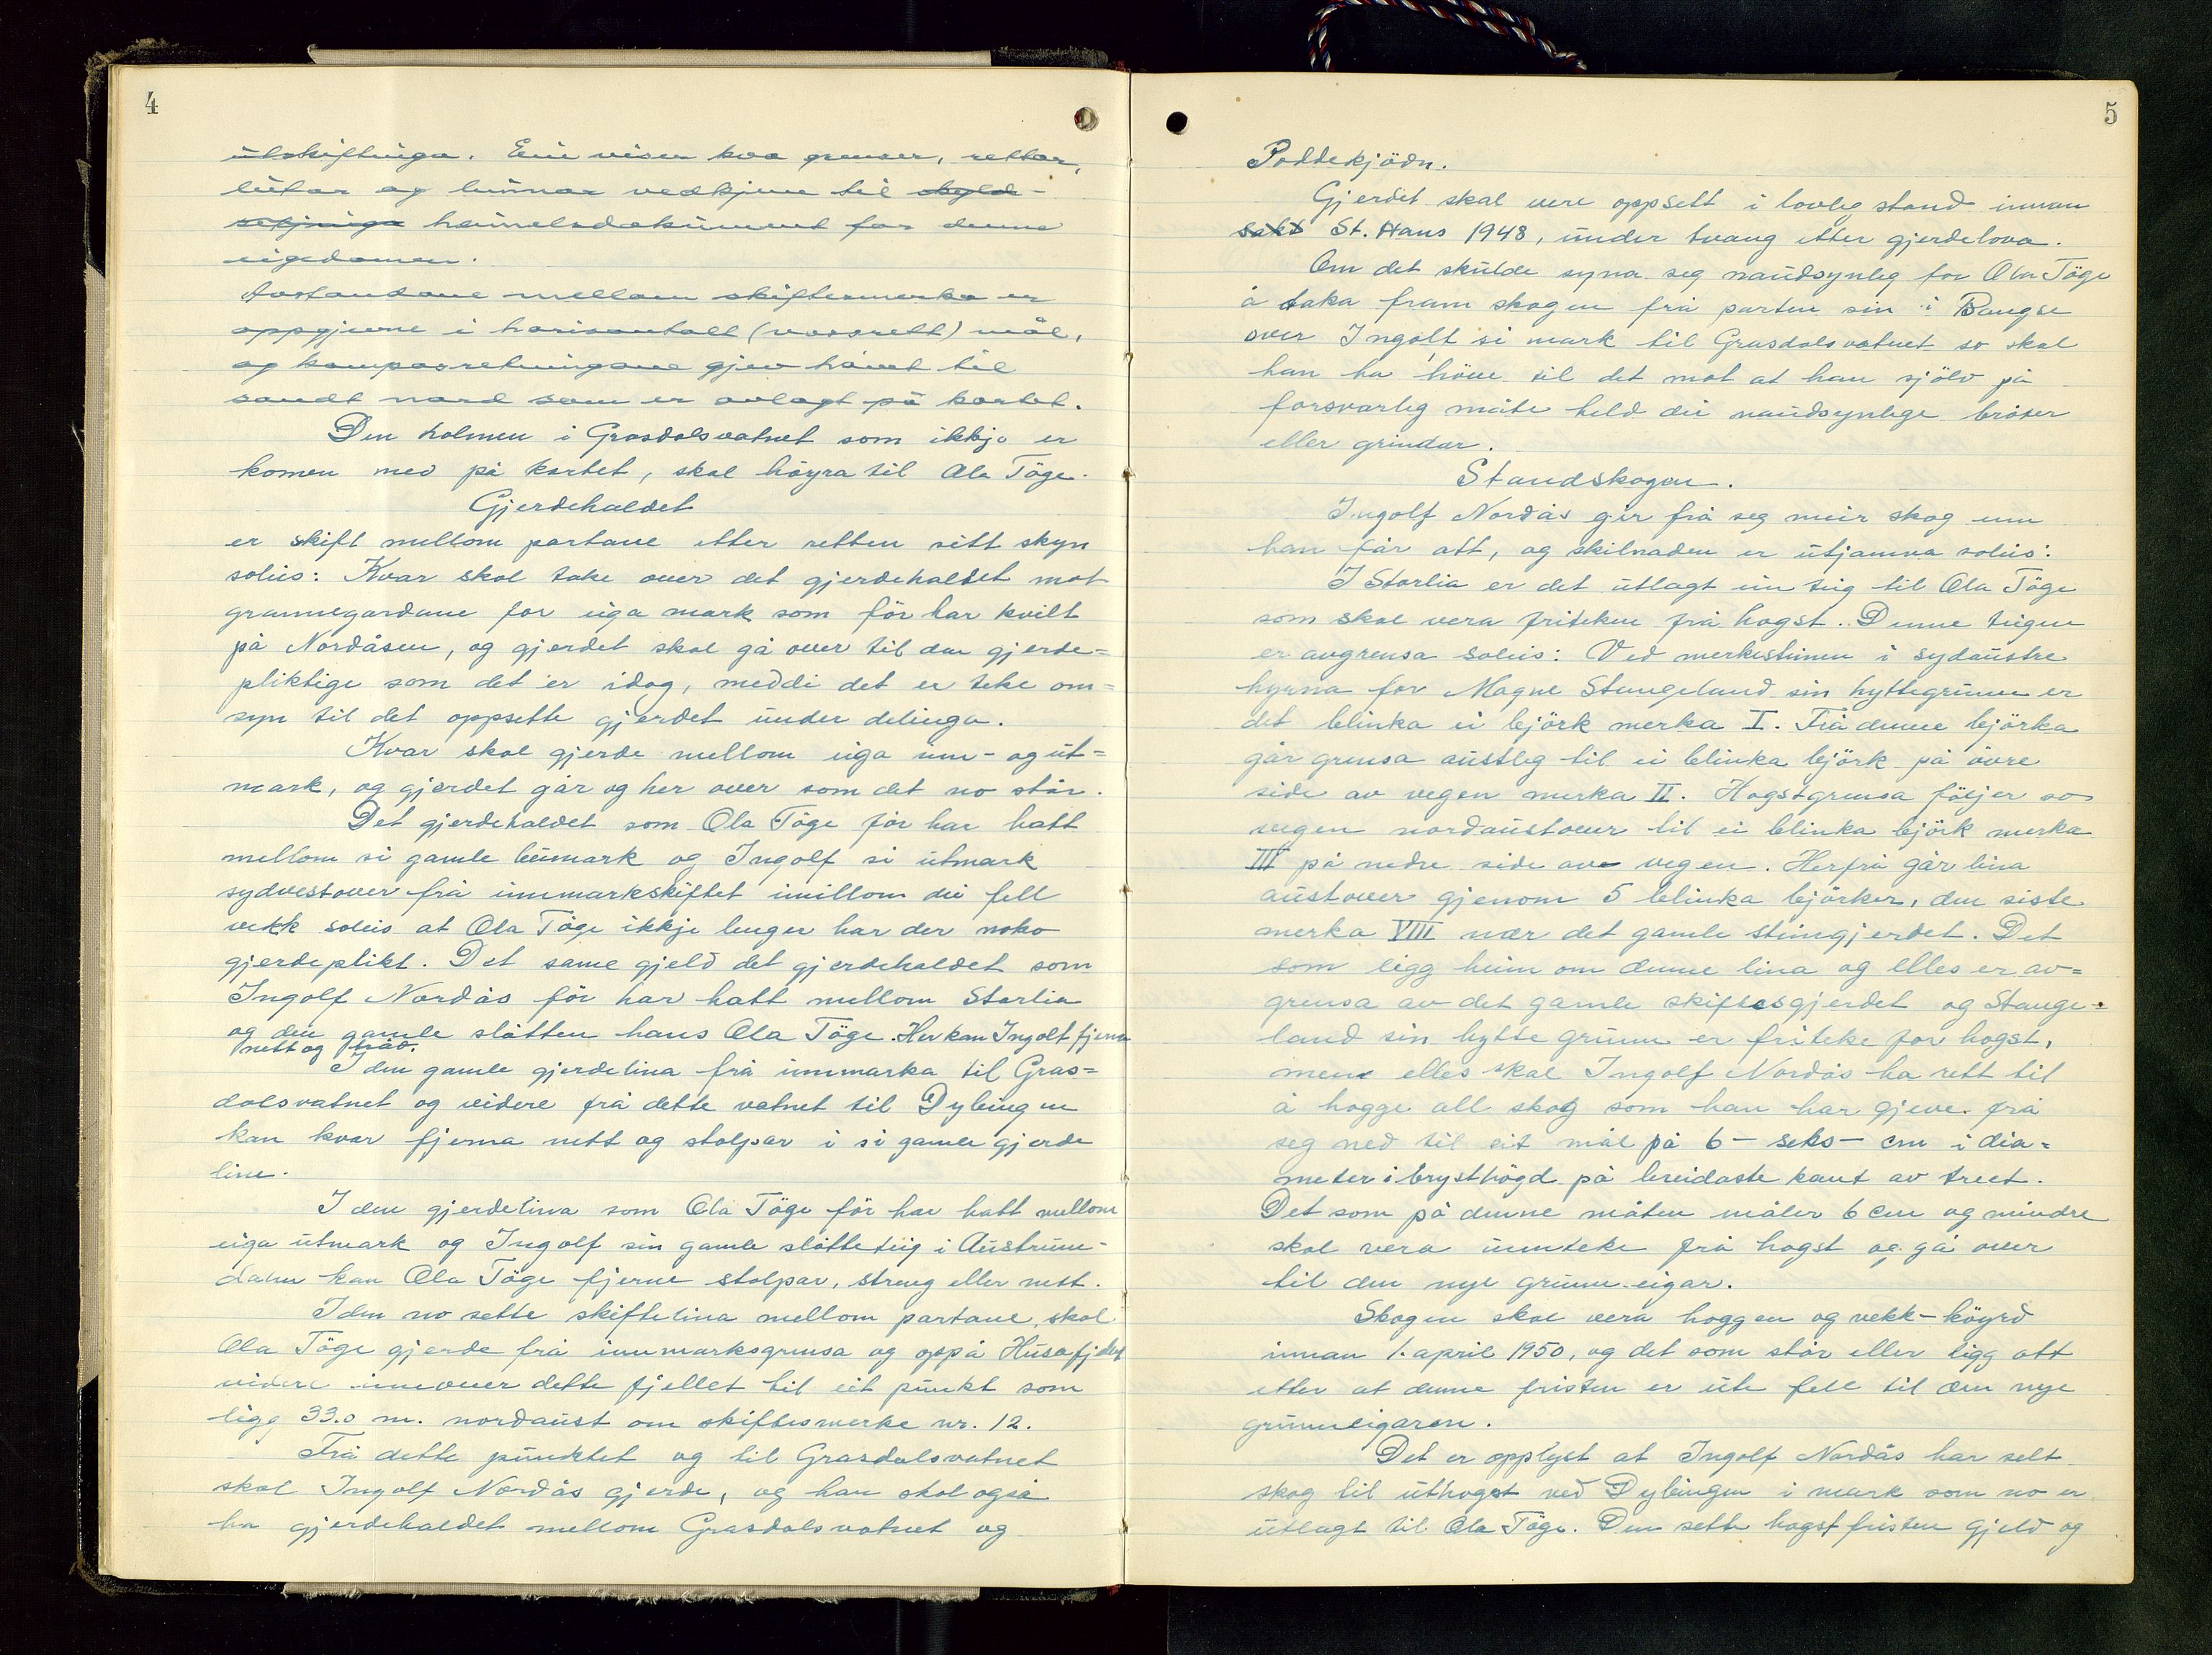 4
utskiftinga. Ein viser kva grenser, rettar,
lutar og lunnar vedkjem til skyld-
setjinga heimelsdokument for denne
eigedomen.
Avstandane mellom skiftesmerka er
oppgjevne i horisontalt (vassrett) mål,
og kompasretningane gjev hänet til
sandt nord som er avlagt på kartet.
Den holmen i Grasdalsvatnet som ikkje er
komen med på kartet, skal höyra til Ola Töge.
Gjerdehaldet
er skift mellom partane etter retten sitt skyn
soleis: Kvar skal take over det gjerdehaldet mot
grannegardane for eiga mark som för har kvilt
på Nordåsen, og gjerdet skal gå over til den gjerde=
pliktige som det er idag, meddi det er teke om=
syn til det oppsette gjerdet under delinga.
Kvar skal gjerde mellom eiga inn- og ut=
mark, og gjerdet går og her over som det no står.
Det gjerdehaldet som Ola Töge för har hatt
mellom si gamle heimark og Ingolf si utmark
sydvestover frå innmarkskiftet imillom dei fell
vekk soleis at Ola Töge ikkje lenger har der noko
gjerdeplikt. Det same gjeld det gjerdehaldet som
Ingolf Nordås för har hatt mellom Storlia
og den gamle slåtten hans Ola Töge. Her kan Ingolf fjerna
nett og tråd.
I den gamle gjerdelina frå innmarka til Gras=
dalsvatnet og videre frå dette vatnet til Dybingen
kan kvar fjerna nett og stolpar i si gamle gjerde
line.
I den gjerdelina som Ola Töge för har hatt mellom
eiga utmark og Ingolf sin gamle slåtteteig i Austrum-
dalen kan Ola Töge fjerne stolpar, streng eller nett.
I den no sette skiftelina mellom partane, skal
Ola Töge gjerde frå innmarksgrensa og oppå Husafjellet
videre inneover dette fjellet til eit punkt som
ligg 33.0 m. nordaust om skiftesmerke nr. 12.
Frå dette punktet og til Grasdalsvatnet
skal Ingolf Nordås gjerde, og han skal også
ha gjerdehaldet mellom Grasdalsvatnet og
5
Poddekjödn.
Gjerdet skal vere oppsett i lovleg stand innan
sakt St. Hans 1948, under tvang etter gjerdelova.
Om det skulde syna seg naudsynleg for Ola Töge
å taka fram skogen frå parten sin i Baugse
over Ingolf si mark til Grasdalsvatnet so skal
han ha höve til det mot at han sjölv på
forsvarleg måte held dei naudsynlege bråter
eller grindar.
Standskogen.
Ingolf Nordås gir frå seg meir skog enn
han får att, og skilnaden er utjamna soleis:
I Storlia er det utlagt ein teig til Ola Töge
som skal vera friteken frå hogst. Denne teigen
er avgrensa soleis: Ved merkesteinen i sydaustre
hyrna for Magne Stangeland sin hyttegrunn er
det blinka ei björk merka I. Frå denne björka
går grensa austleg til ei blinka björk på övre
side av vegen merka II. Hogstgrensa följer so
vegen nordaustover til ei blinka björk merka
III på nedre side av vegen. Herfrå går lina
austover gjenom 5 blinka björker, den siste
merka VIII nær det gamle steingjerdet. Det
som ligg heim om denne lina og elles er av=
grensa av det gamle skiftesgjerdet og Stange-
land sin hytte grunn er friteke for hogst,
men elles skal Ingolf Nordås ha rett til
å hogge all skog som han har gjeve frå
seg ned til eit mål på 6 - seks - cm i dia=
meter i brysthögd på breidaste kant av treet.
Det som på denne måten måler 6 cm og mindre
skal vera unnteke frå hogst og gå over
til den nye grunn-eigar.
Skogen skal vera hoggen og vekk-köyrd
innan 1. april 1950, og det som står eller ligg att
etter at denne fristen er ute fell til den nye
grunneigaren.
Det er opplyst at Ingolf Nordås har selt
skog til uthogst ved Dybingen i mark som no er
utlagt til Ola Töge. Den sette hogstfristen gjeld og